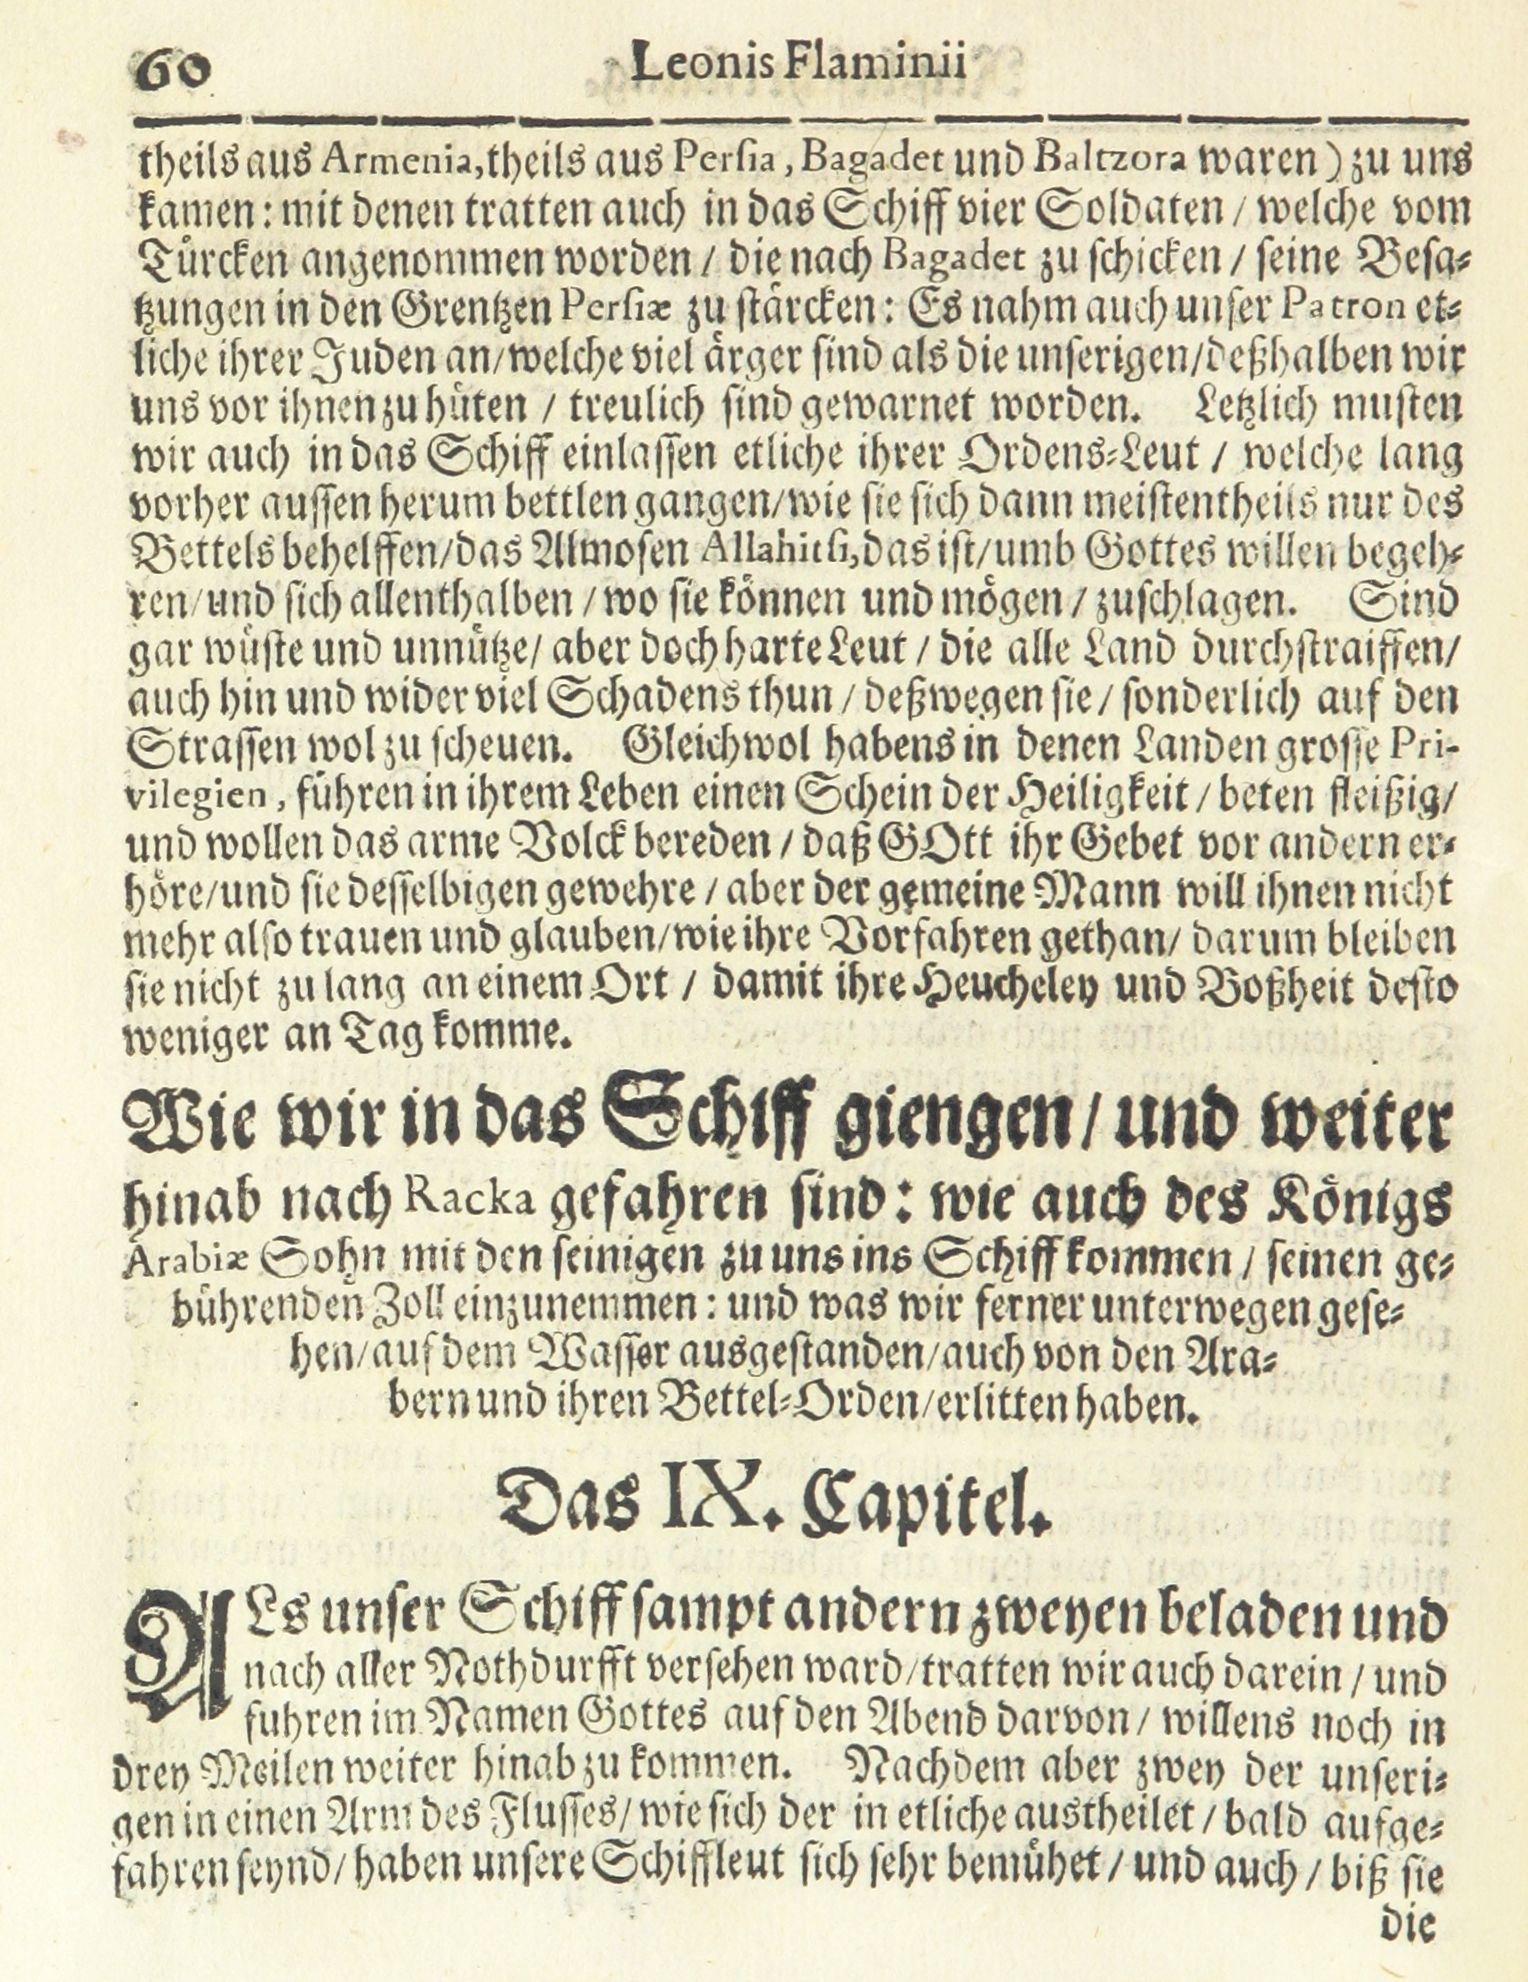 60
Leonis Flaminii
theils aus Armenia, theils aus Persia, Bagadet und Baltzora waren) zu uns
kamen: mit denen tratten auch in das Schiff vier Soldaten / welche vom
Türcken angenommen worden / die nach Bagadet zu schicken / seine Besa-
tzungen in den Grentzen Persiæ zu stärcken: Es nahm auch unser Patron et-
liche ihrer Juden an/ welche viel ärger sind als die unserigen/ deßhalben wir
uns vor ihnen zu hüten / treulich sind gewarnet worden. Letzlich musten
wir auch in das Schiff einlassen etliche ihrer Ordens-Leut / welche lang
vorher aussen herum bettlen gangen/ wie sie sich dann meistentheils nur des
Bettels behelffen/ das Almosen Allahicsi, das ist/ umb Gottes willen begeh-
ren/ und sich allenthalben / wo sie können und mögen / zuschlagen. Sind
gar wüste und unnütze/ aber doch harte Leut / die alle Land durchstraiffen/
auch hin und wider viel Schadens thun / deßwegen sie / sonderlich auf den
Strassen wol zu scheuen. Gleichwol habens in denen Landen grosse Pri-
vilegien, führen in ihrem Leben einen Schein der Heiligkeit / beten fleißig/
und wollen das arme Volck bereden / daß GOtt ihr Gebet vor andern er-
höre/ und sie desselbigen gewehre / aber der gemeine Mann will ihnen nicht
mehr also trauen und glauben/ wie ihre Vorfahren gethan/ darum bleiben
sie nicht zu lang an einem Ort / damit ihre Heucheley und Boßheit desto
weniger an Tag komme.
Wie wir in das Schiff giengen/ und weiter
hinab nach Racka gefahren sind: wie auch des Königs
Arabiæ Sohn mit den seinigen zu uns ins Schiff kommen / seinen ge-
bührenden Zoll einzunemmen: und was wir ferner unterwegen gese-
hen/ auf dem Wasser ausgestanden/ auch von den Ara-
bern und ihren Bettel-Orden/ erlitten haben.
Das IX. Capitel.
ALs unser Schiff sampt andern zweyen beladen und
nach aller Nothdurfft versehen ward/ tratten wir auch darein / und
fuhren im Namen Gottes auf den Abend darvon / willens noch in
drey Meilen weiter hinab zu kommen. Nachdem aber zwey der unseri-
gen in einen Arm des Flusses/ wie sich der in etliche austheilet / bald aufge-
fahren seynd/ haben unsere Schiffleut sich sehr bemühet / und auch / biß sie
die